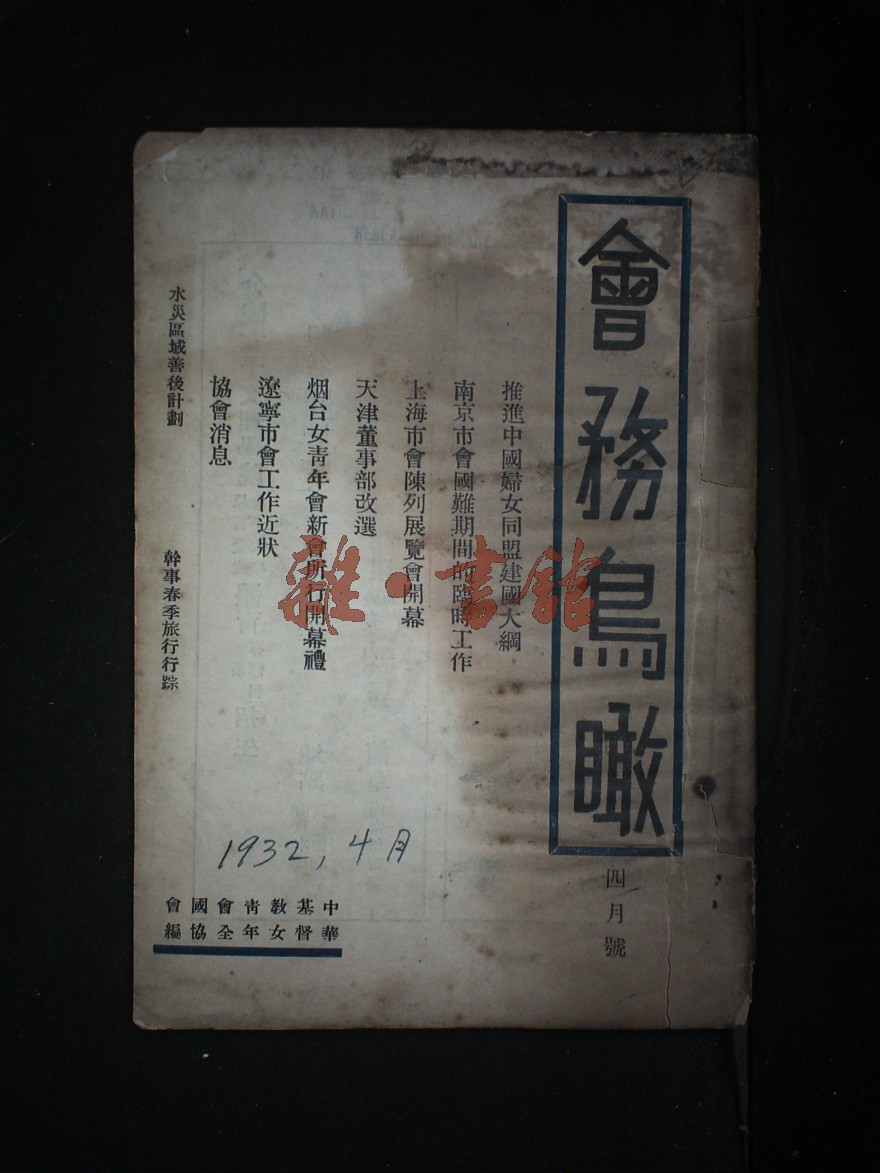 會務鳥瞰
四月號
推進中國婦女同盟建國大綱
南京市會國難期間的臨時工作
上海市會陳列展覽會開幕
天津董事部改選
烟台女靑年會新會所行開幕禮
遼寧市會工作近狀
協會消息
水災區域善後計劃
幹事春季旅行行踪
1932, 4月
中華基督敎女靑年會全國協會編
雜·書館